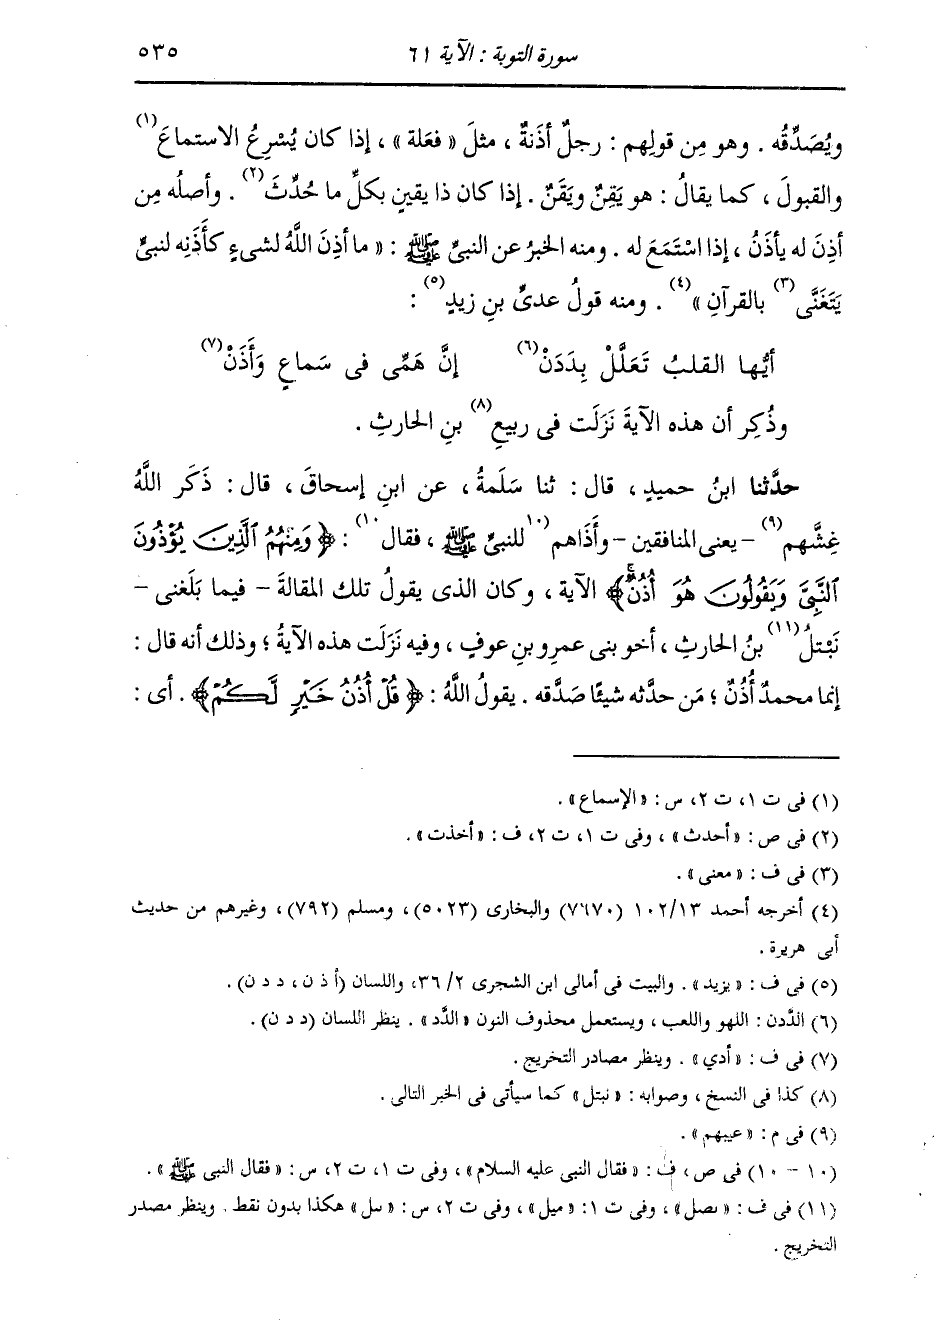 سورة التوبة : الآية ٦١ ٥٣٥
ويُصَدِّقُه . وهو مِن قولِهم : رجلٌ أذَنةٌ ، مثلَ « فعَلة » ، إذا كان يُسْرِعُ الاستماعَ(١)
والقبولَ ، كما يقالُ : هو يَقِنٌ ويَقَنٌ . إذا كان ذا يقينٍ بكلِّ ما حُدِّثَ(٢) . وأصلُه مِن
أذِنَ له يأذَنُ ، إذا اسْتَمَعَ له . ومنه الخبرُ عن النبيِّ ﷺ : « ما أذِنَ اللَّهُ لشىءٍ كأَذَنِه لنبىٍّ
يَتَغَنَّى(٣) بالقرآنِ »(٤) . ومنه قولُ عدىِّ بنِ زيدٍ(٥) :
أيُّها القلبُ تَعَلَّلْ بِدَدَنْ(٦) إنَّ هَمِّى فى سَماعٍ وَأَذَنْ(٧)
وذُكِر أن هذه الآيةَ نَزَلَت فى ربيعِ(٨) بنِ الحارثِ .
حدَّثنا ابنُ حميدٍ ، قال : ثنا سَلَمةُ ، عن ابنِ إسحاقَ ، قال : ذَكَر اللَّهُ
غِشَّهم(٩) – يعنى المنافقين – وأَذَاهم (١٠للنبىِّ ﷺ ، فقال١٠) : ﴿ وَمِنْهُمُ ٱلَّذِينَ يُؤْذُونَ
ٱلنَّبِىَّ وَيَقُولُونَ هُوَ أُذُنٌ ۚ﴾ الآية ، وكان الذى يقولُ تلك المقالةَ – فيما بَلَغنى –
نَبْتلُ(١١) بنُ الحارثِ ، أخو بنى عمرِو بنِ عوفٍ ، وفيه نَزَلَت هذه الآيةُ ؛ وذلك أنه قال :
إنما محمدٌ أُذُنٌ ؛ مَن حدَّثه شيئًا صَدَّقه . يقولُ اللَّهُ : ﴿ قُلْ أُذُنُ خَيْرٍ لَّكُمْ ﴾ . أى :
(١) فى ت ١، ت ٢، س : «الإسماع» .
(٢) فى ص : «أحدث» ، وفى ت ١، ت ٢، ف : «أخذت» .
(٣) فى ف : «معنى» .
(٤) أخرجه أحمد ١٠٢/١٣ (٧٦٧٠) والبخارى (٥٠٢٣)، ومسلم (٧٩٢)، وغيرهم من حديث
أبى هريرة .
(٥) فى ف : «يزيد» . والبيت فى أمالى ابن الشجرى ٢/ ٣٦، واللسان (أ ذ ن ، د د ن) .
(٦) الدَّدن : اللهو واللعب ، ويستعمل محذوف النون «الدَّد» . ينظر اللسان (د د ن) .
(٧) فى ف : «أدي» . وينظر مصادر التخريج .
(٨) كذا فى النسخ ، وصوابه : «نبتل» كما سيأتى فى الخبر التالى .
(٩) فى م : «عيبهم» .
(١٠ – ١٠) فى ص ، ف : «فقال النبى عليه السلام» ، وفى ت ١، ت ٢، س : «فقال النبى ﷺ» .
(١١) فى ف : «ىصل» ، وفى ت ١: «ميل» ، وفى ت ٢، س : «ىىل» هكذا بدون نقط . وينظر مصدر
التخريج .